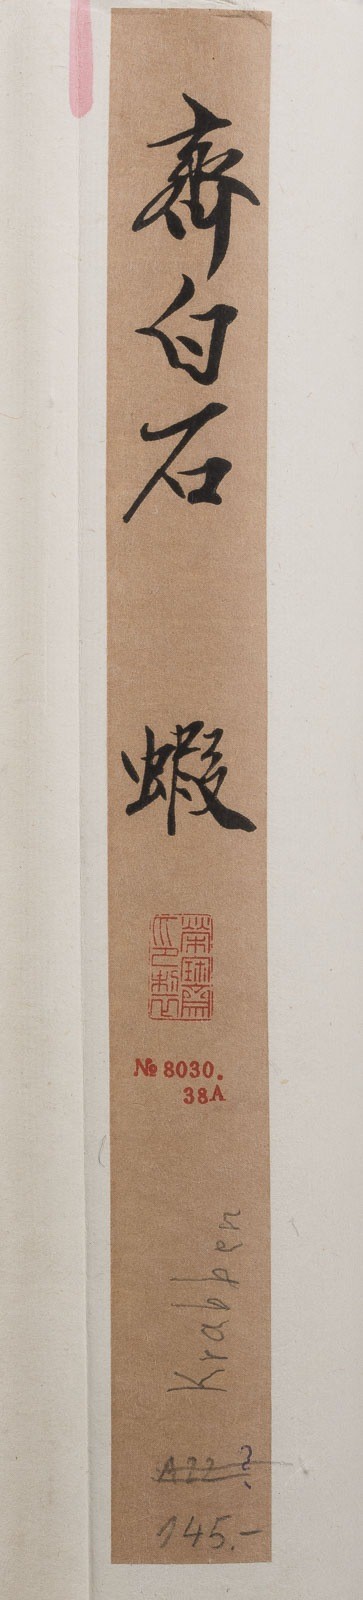 齊白石 蝦
榮寶齋製
№ 8030.
38A
Krabben
A22 ?
145.-